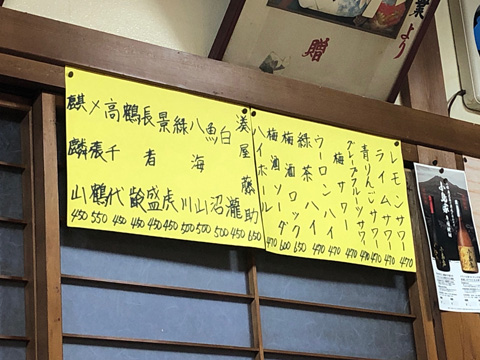 業より
贈
レモンサワー 470
ライムサワー 470
青りんごサワー 470
グレープフルーツサワー 490
梅サワー 470
ウーロンハイ 470
緑茶ハイ 470
梅酒ロック 650
梅酒ソーダ 600
ハイボール 470
湊屋藤助 650
白瀧 450
魚沼 500
八海山 500
緑川 500
景虎 450
長者盛 450
鶴齢 450
高千代 450
〆張鶴 550
麒麟山 450